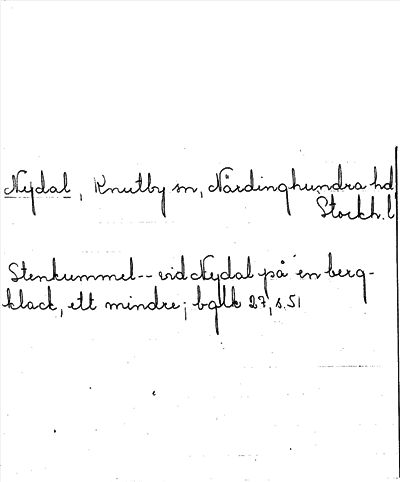 Nydal, Knutby sn, Närdinghundra hd
Stockh. l
Stenkummel-- vid Nydal på en berg-
klack, ett mindre; bglb 27, s. 51